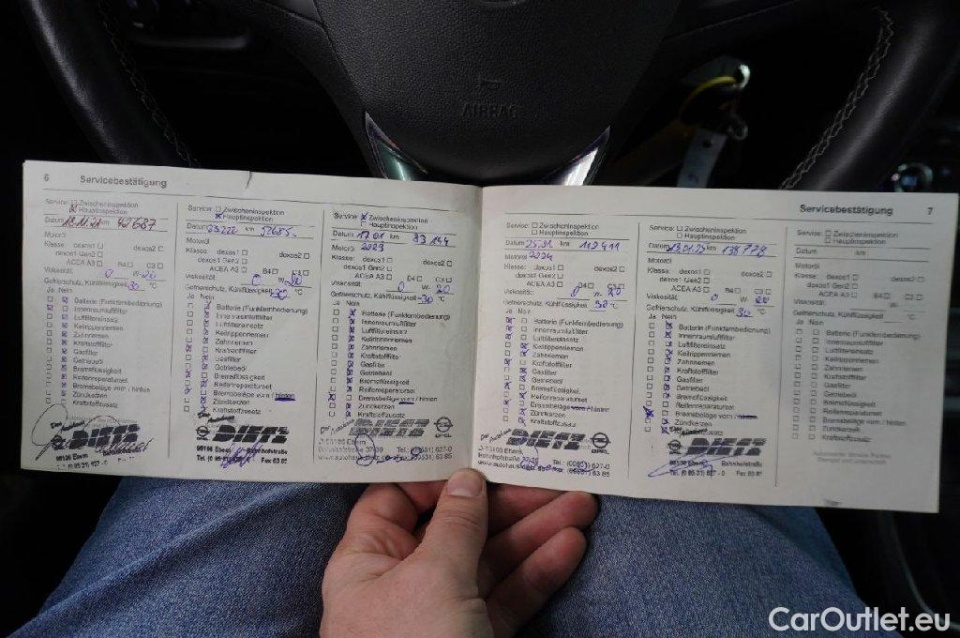 AIRBAG
6 Servicebestätigung
Service: Zwischeninspektion
Hauptinspektion
Datum km 42687
Motoröl
Klasse: dexos1 dexos2
dexos1 Gen2
ACEA A3 B4 C3
Viskosität 0 W 20
Gefrierschutz, Kühlflüssigkeit 30 °C
Ja Nein
Batterie (Funkfernbedienung)
Innenraumluftfilter
Luftfiltereinsatz
Keilrippenriemen
Zahnriemen
Kraftstofffilter
Gasfilter
Getriebeöl
Bremsflüssigkeit
Reifenreparaturset
Bremsbeläge vorn / hinten
Zündkerzen
Kraftstoffzusatz
DIETZ
96106 Ebern
Service: Zwischeninspektion
Hauptinspektion
Datum km
Motoröl
Klasse: dexos1 dexos2
dexos1 Gen2
ACEA A3 B4 C3
Viskosität 0 W 20
Gefrierschutz, Kühlflüssigkeit 30 °C
Ja Nein
Batterie (Funkfernbedienung)
Innenraumluftfilter
Luftfiltereinsatz
Keilrippenriemen
Zahnriemen
Kraftstofffilter
Gasfilter
Getriebeöl
Bremsflüssigkeit
Reifenreparaturset
Bremsbeläge vorn / hinten
Zündkerzen
Kraftstoffzusatz
Das Autohaus
DIETZ
96106 Ebern Bahnhofstraße
Service: Zwischeninspektion
Hauptinspektion
Datum 17.01 km 83144
Motoröl
Klasse: dexos1 dexos2
dexos1 Gen2
ACEA A3 B4 C3
Viskosität 0 W 20
Gefrierschutz, Kühlflüssigkeit -30 °C
Ja Nein
Batterie (Funkfernbedienung)
Innenraumluftfilter
Luftfiltereinsatz
Keilrippenriemen
Zahnriemen
Kraftstofffilter
Gasfilter
Getriebeöl
Bremsflüssigkeit
Reifenreparaturset
Bremsbeläge vorn / hinten
Zündkerzen
Kraftstoffzusatz
Das Autohaus
DIETZ OPEL
D-96106 Ebern
Servicebestätigung 7
Service: Zwischeninspektion
Hauptinspektion
Datum 25.01 km 112411
Motoröl 2024
Klasse: dexos1 dexos2
dexos1 Gen2
ACEA A3 B4 C3
Viskosität 0 W 20
Gefrierschutz, Kühlflüssigkeit
Ja Nein
Batterie (Funkfernbedienung)
Innenraumluftfilter
Luftfiltereinsatz
Keilrippenriemen
Zahnriemen
Kraftstofffilter
Gasfilter
Getriebeöl
Bremsflüssigkeit
Reifenreparaturset
Bremsbeläge vorn / hinten
Zündkerzen
Kraftstoffzusatz
Das Autohaus
DIETZ OPEL
D-96106 Ebern
Service: Zwischeninspektion
Hauptinspektion
Datum km
Motoröl
Klasse: dexos1 dexos2
dexos1 Gen2
ACEA A3 B4 C3
Viskosität 0 W 20
Gefrierschutz, Kühlflüssigkeit 30 °C
Ja Nein
Batterie (Funkfernbedienung)
Innenraumluftfilter
Luftfiltereinsatz
Keilrippenriemen
Zahnriemen
Kraftstofffilter
Gasfilter
Getriebeöl
Bremsflüssigkeit
Reifenreparaturset
Bremsbeläge vorn / hinten
Zündkerzen
Kraftstoffzusatz
DIETZ
96106 Ebern Bahnhofstraße
Service: Zwischeninspektion
Hauptinspektion
Datum km
Motoröl
Klasse: dexos1 dexos2
dexos1 Gen2
ACEA A3 B4 C3
Viskosität W
Gefrierschutz, Kühlflüssigkeit °C
Ja Nein
Batterie (Funkfernbedienung)
Innenraumluftfilter
Luftfiltereinsatz
Keilrippenriemen
Zahnriemen
Kraftstofffilter
Gasfilter
Getriebeöl
Bremsflüssigkeit
Reifenreparaturset
Bremsbeläge vorn / hinten
Zündkerzen
Kraftstoffzusatz
CarOutlet.eu